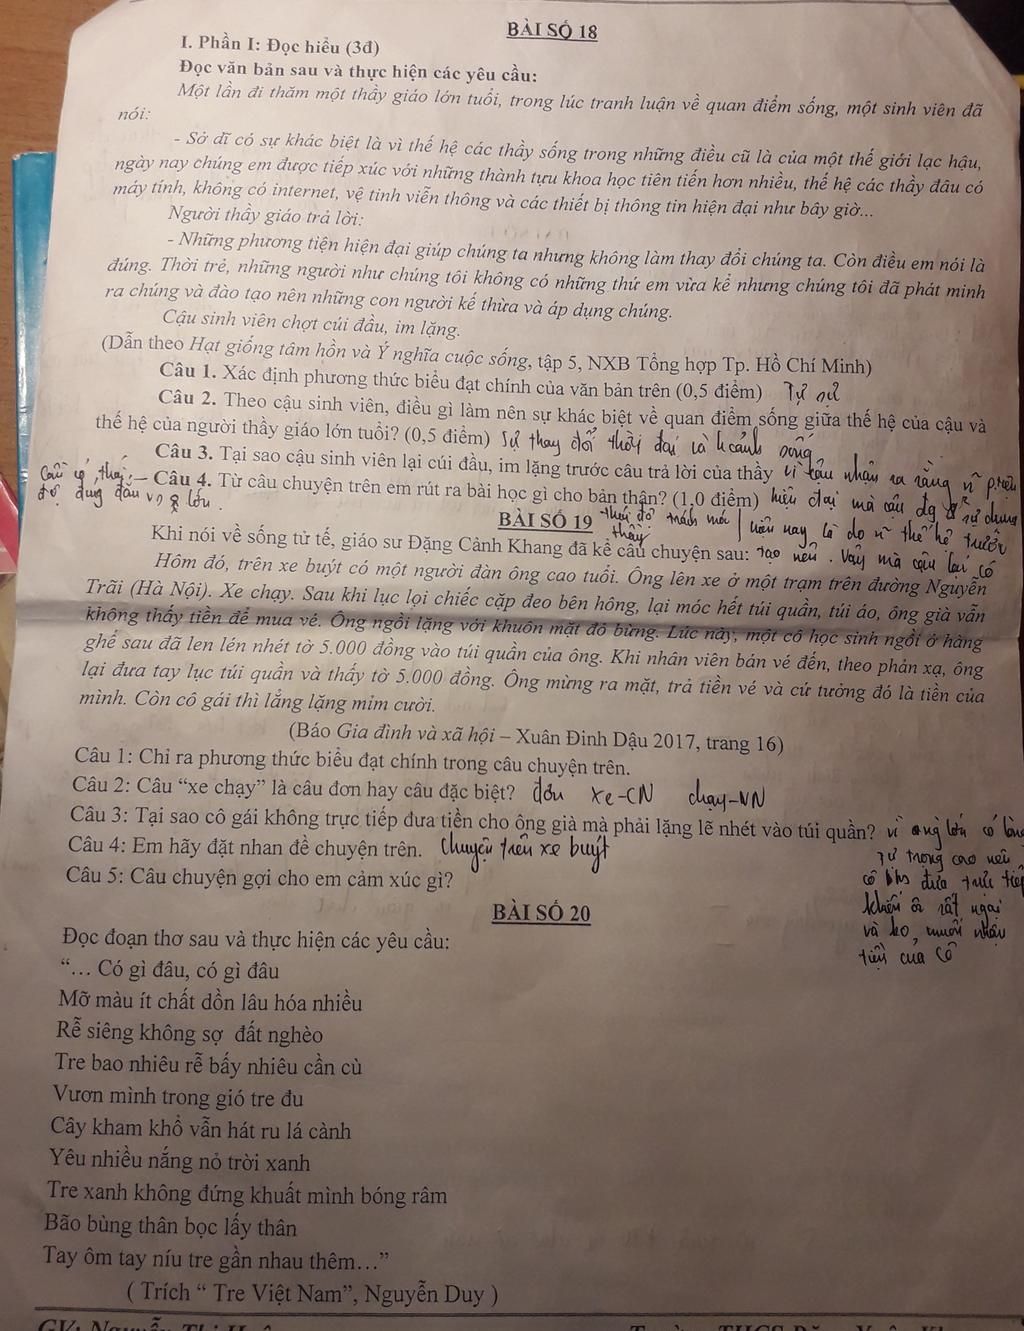 BÀI SỐ 18
I. Phần I: Đọc hiểu (3đ)
Đọc văn bản sau và thực hiện các yêu cầu:
Một lần đi thăm một thầy giáo lớn tuổi, trong lúc tranh luận về quan điểm sống, một sinh viên đã
nói:
- Sở dĩ có sự khác biệt là vì thế hệ các thầy sống trong những điều cũ là của một thế giới lạc hậu,
ngày nay chúng em được tiếp xúc với những thành tựu khoa học tiên tiến hơn nhiều, thế hệ các thầy đâu có
máy tính, không có internet, vệ tinh viễn thông và các thiết bị thông tin hiện đại như bây giờ...
Người thầy giáo trả lời:
- Những phương tiện hiện đại giúp chúng ta nhưng không làm thay đổi chúng ta. Còn điều em nói là
đúng. Thời trẻ, những người như chúng tôi không có những thứ em vừa kể nhưng chúng tôi đã phát minh
ra chúng và đào tạo nên những con người kế thừa và áp dụng chúng.
Cậu sinh viên chợt cúi đầu, im lặng.
(Dẫn theo Hạt giống tâm hồn và Ý nghĩa cuộc sống, tập 5, NXB Tổng hợp Tp. Hồ Chí Minh)
Câu 1. Xác định phương thức biểu đạt chính của văn bản trên (0,5 điểm) Tự sự
Câu 2. Theo cậu sinh viên, điều gì làm nên sự khác biệt về quan điểm sống giữa thế hệ của cậu và
thế hệ của người thầy giáo lớn tuổi? (0,5 điểm) Sự thay đổi thời đại và h cảnh sống
Câu 3. Tại sao cậu sinh viên lại cúi đầu, im lặng trước câu trả lời của thầy vì cậu nhận ra rằng
Câu 4. Từ câu chuyện trên em rút ra bài học gì cho bản thân? (1,0 điểm) hiện đại mà cậu đg sử dụng
Cần có thái
độ đúng đắn lớn.
BÀI SỐ 19
hiện nay là do thế hệ trước
Khi nói về sống tử tế, giáo sư Đặng Cảnh Khang đã kể câu chuyện sau: tạo nên. Vậy mà cậu lại có
thái độ trách móc
thầy
Hôm đó, trên xe buýt có một người đàn ông cao tuổi. Ông lên xe ở một trạm trên đường Nguyễn
Trãi (Hà Nội). Xe chạy. Sau khi lục lọi chiếc cặp đeo bên hông, lại móc hết túi quần, túi áo, ông già vẫn
không thấy tiền để mua vé. Ông ngồi lặng với khuôn mặt đỏ bừng. Lúc này, một cô học sinh ngồi ở hàng
ghế sau đã len lén nhét tờ 5.000 đồng vào túi quần của ông. Khi nhân viên bán vé đến, theo phản xạ, ông
lại đưa tay lục túi quần và thấy tờ 5.000 đồng. Ông mừng ra mặt, trả tiền vé và cứ tưởng đó là tiền của
mình. Còn cô gái thì lẳng lặng mỉm cười.
(Báo Gia đình và xã hội – Xuân Đinh Dậu 2017, trang 16)
Câu 1: Chỉ ra phương thức biểu đạt chính trong câu chuyện trên.
Câu 2: Câu “xe chạy” là câu đơn hay câu đặc biệt? đơn xe-CN chạy-VN
Câu 3: Tại sao cô gái không trực tiếp đưa tiền cho ông già mà phải lặng lẽ nhét vào túi quần? vì ông lão có lòng
Câu 4: Em hãy đặt nhan đề chuyện trên. Chuyện trên xe buýt
tự trọng cao nếu
Câu 5: Câu chuyện gợi cho em cảm xúc gì?
cô bhs đưa trực tiếp
khiến ô rất ngại
và ko muốn nhận
tiền của cô
BÀI SỐ 20
Đọc đoạn thơ sau và thực hiện các yêu cầu:
“... Có gì đâu, có gì đâu
Mỡ màu ít chất dồn lâu hóa nhiều
Rễ siêng không sợ đất nghèo
Tre bao nhiêu rễ bấy nhiêu cần cù
Vươn mình trong gió tre đu
Cây kham khổ vẫn hát ru lá cành
Yêu nhiều nắng nỏ trời xanh
Tre xanh không đứng khuất mình bóng râm
Bão bùng thân bọc lấy thân
Tay ôm tay níu tre gần nhau thêm...”
( Trích “ Tre Việt Nam”, Nguyễn Duy )